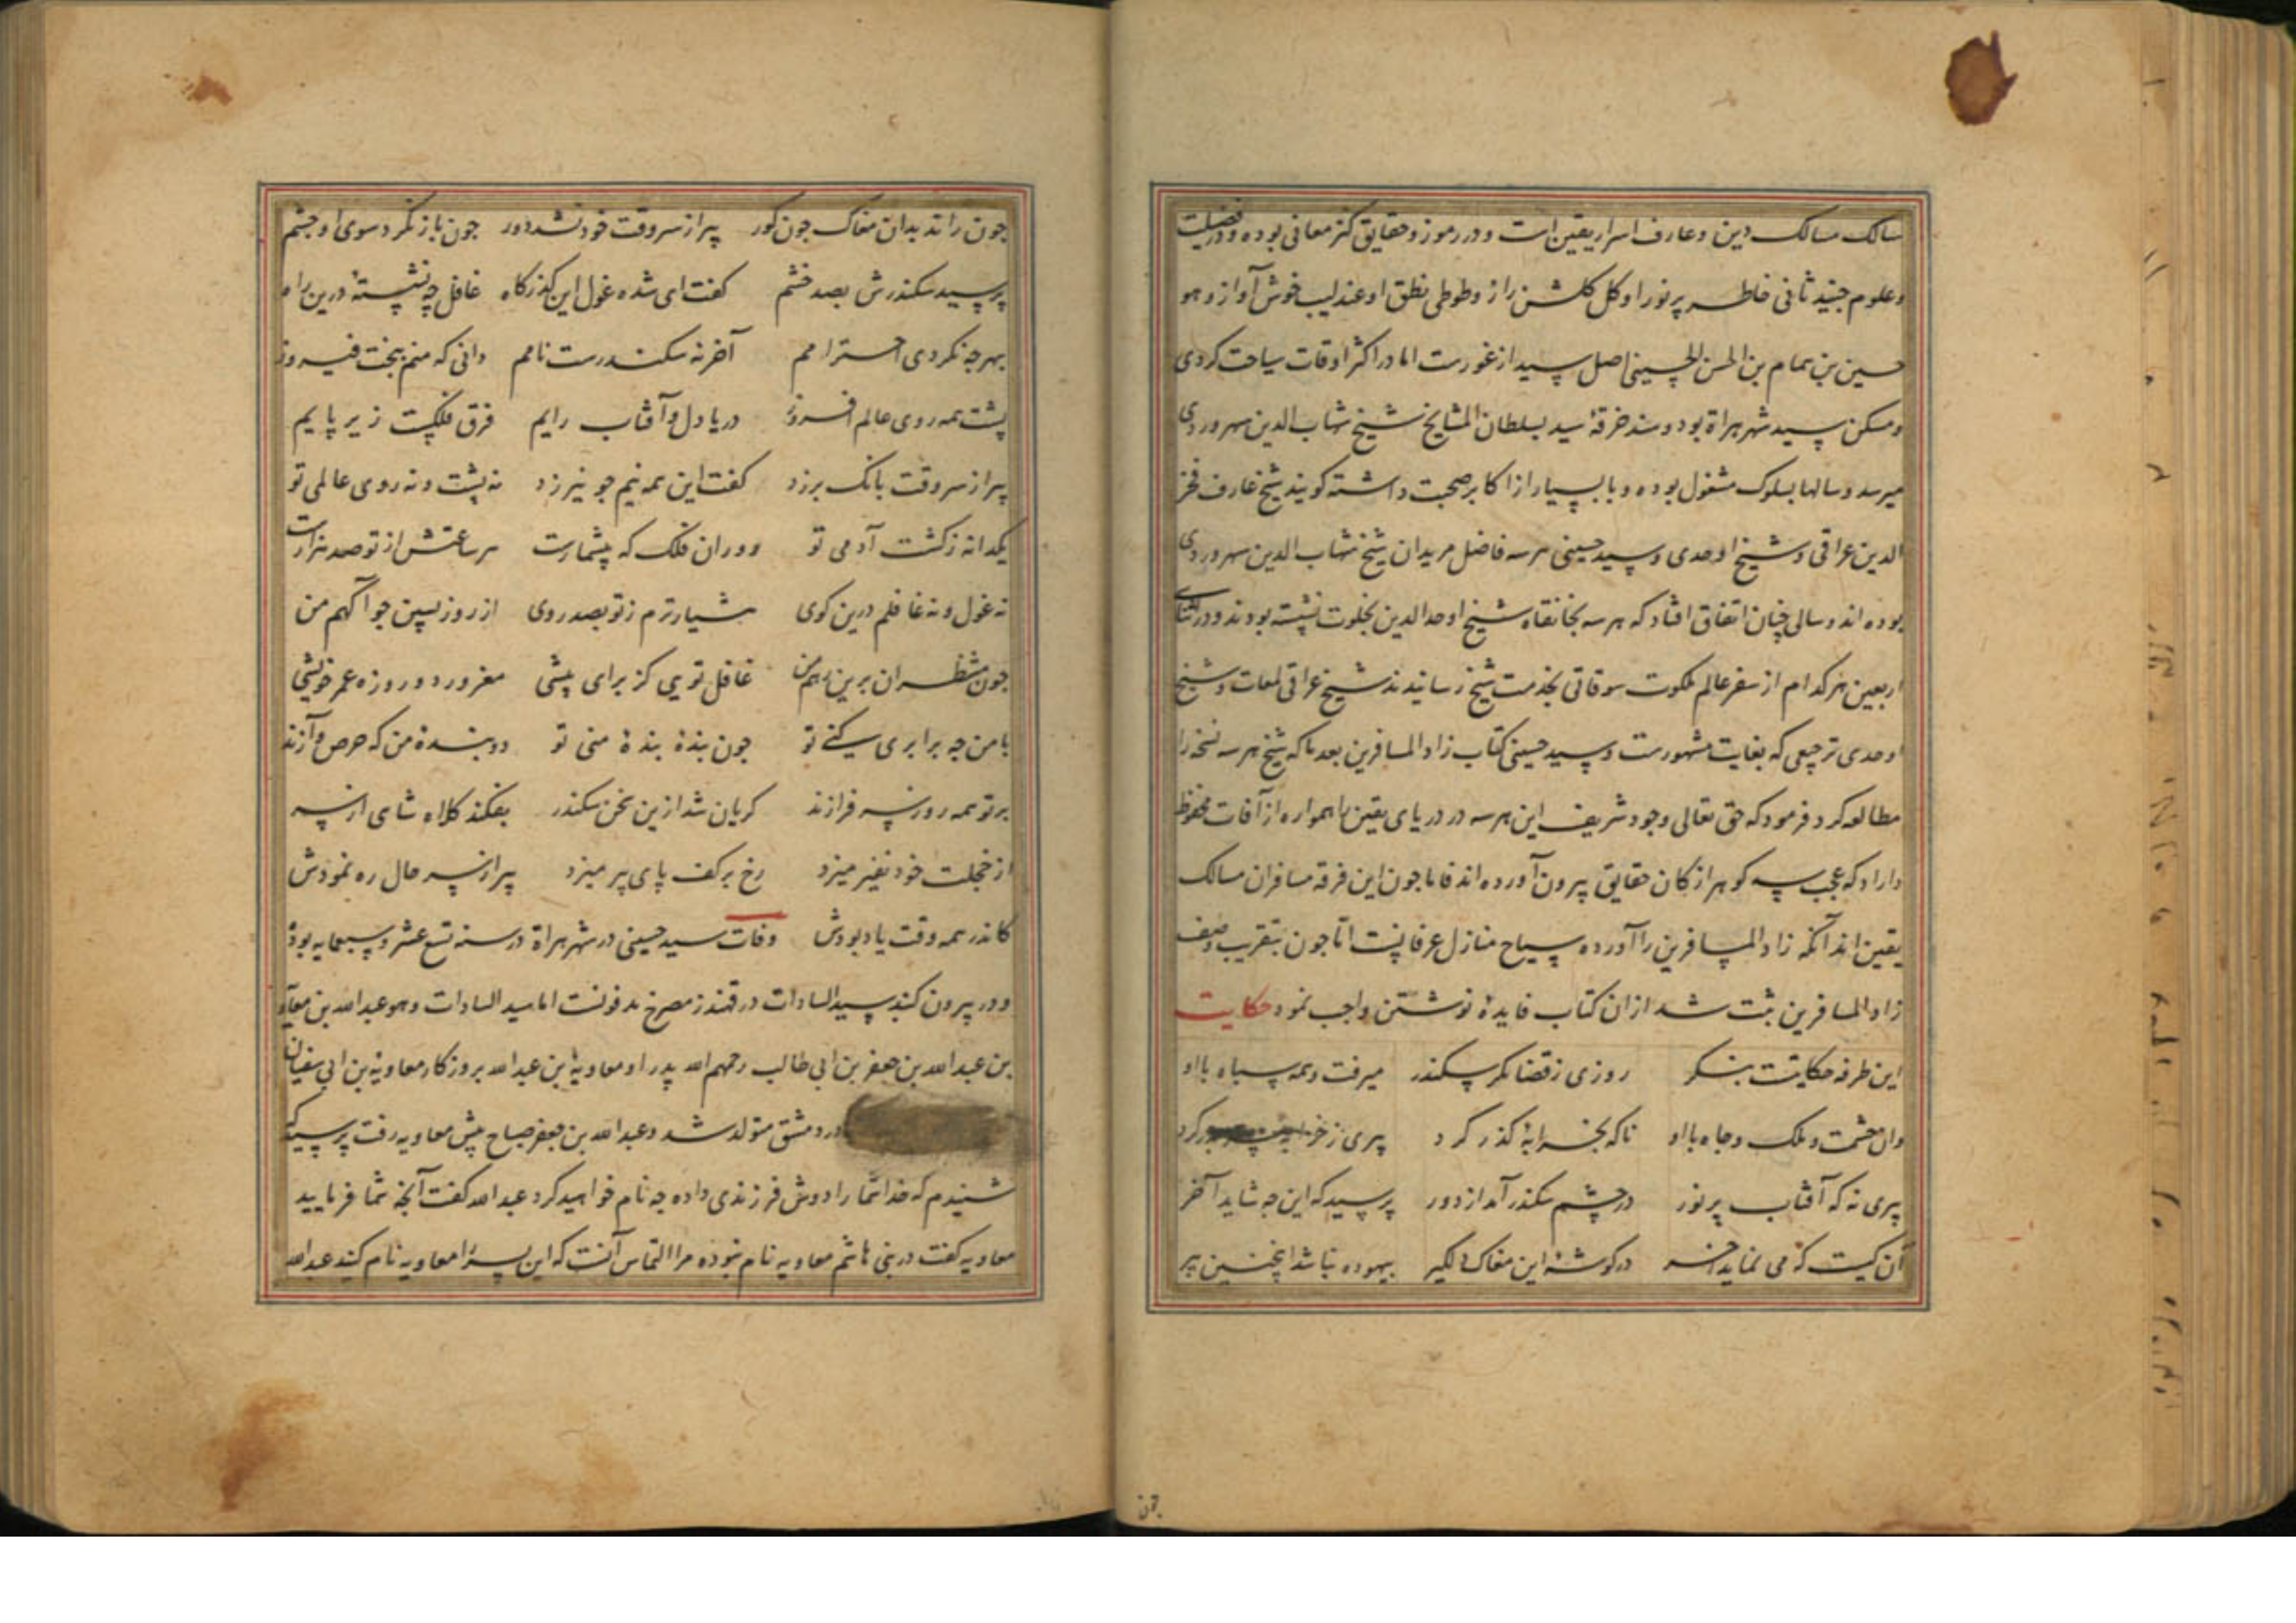 سالک مسالک دین و عارف اسرار یقین است و در رموز و حقایق کنز معانی بوده و در فضیلت
و علوم جنید ثانی خاطر پر نور او کل کلشن راز و طوطی نطق او عندلیب خوش آواز و هو
حسین بن همام بن الحسن الحسینی اصل سید از غورست اما در اکثر اوقات سیاحت کردی
و مسکن سید شهر هراة بود و سند خرقهٔ سید بسلطان المشایخ شیخ شهاب الدین سهروردی
میرسد و سالها بسلوک مشغول بوده و با بسیار از اکابر صحبت داشته کویند شیخ عارف فخر
الدین عراقی و شیخ اوحدی و سید حسینی هر سه فاضل مریدان شیخ شهاب الدین سهروردی
بوده اند و سالی چنان اتفاق افتاد که هر سه بخانقاه شیخ اوحد الدین بخلوت نشسته بودند و در اثنای
اربعین هر کدام از سفر عالم ملکوت سوقاتی بخدمت شیخ رسانیدند شیخ عراقی لمعات و شیخ
اوحدی ترجیعی که بغایت مشهورست و سید حسینی کتاب زاد المسافرین بعد ما که شیخ هر سه نسخه را
مطالعه کرد فرمود که حق تعالی وجود شریف این هر سه در دریای یقین را همواره از آفات محفوظ
داراد که عجب سه کوهر از کان حقایق بیرون آورده اند فاما جون این فرقه مسافران مسالک
یقین اند آنکه زاد المسافرین را آورده سیاح منازل عرفانست اما جون بتقریب وصف
زاد المسافرین ثبت شد ازان کتاب فایدهٔ نوشتن واجب نمود حکایت
این طرفه حکایتست بنکر روزی ز قضا مکر سکندر میرفت و همه سپاه با او
وان حشمت و ملک و جاه با او ناکه بخرابهٔ کذر کرد پیری ز خرابه سر بدر کرد
پیری نه که آفتاب پر نور در چشم سکندر آمد از دور پرسید که این جه شاید آخر
آن کیست که می نماید آخر در کوشهٔ این مغاک دلکیر بیهوده نباشد اینچنین پیر
جون
جون راند بدان مغاک جون کور پیر از سر وقت خود نشد دور جون باز نکرد سوی او جشم
پرسید سکندرش بصد خشم کفت ای شده غول این کذرکاه غافل چه نشستهٔ درین راه
بهر چه نکردی احترامم آخر نه سکندرست نامم دانی که منم ببخت فیروز
پشت همه روی عالم افروز دریا دل و آفتاب رایم فرق فلکست زیر پایم
پیر از سر وقت بانک برزد کفت این همه نیم جو نیرزد نه پشت و نه روی عالمی تو
یکدانه ز کشت آدمی تو دوران فلک که بیشمارست هر ساعتش از تو صد هزارست
نه غول و نه غافلم درین کوی هشیارترم ز تو بصد روی از روز پسین جو آکهم من
جون منتظران برین رهم من غافل تویی کز برای پیشی مغرور دو روزه عمر خویشی
با من جه برابری کنی تو جون بندهٔ بندهٔ منی تو دو بندهٔ من که حرص و آزند
بر تو همه روز سر فرازند کریان شد ازین سخن سکندر بفکند کلاه شاهی از سر
از خجلت خود نفیر میزد رخ بر کف پای پیر میزد پیر از سر حال ره نمودش
کاندر همه وقت یاد بودش وفات سید حسینی در شهر هراة در سنه تسع عشر و سبعمایه بوده
و در بیرون کنبد سید السادات در قهندز مصرخ مدفونست اما سید السادات و هو عبد الله بن معاویه
بن عبد الله بن جعفر بن ابی طالب رحمهم الله پدر او معاویهٔ بن عبد الله بروزکار معاویهٔ بن ابی سفیان
در دمشق متولد شد و عبد الله بن جعفر صباح پیش معاویه رفت پرسید که
شنیدم که خدا شما را دوش فرزندی داده جه نام خواهید کرد عبد الله کفت آنچه شما فرمایید
معاویه کفت در بنی هاشم معاویه نام نبوده مرا التماس آنست که این پسر را معاویه نام کنید عبد الله